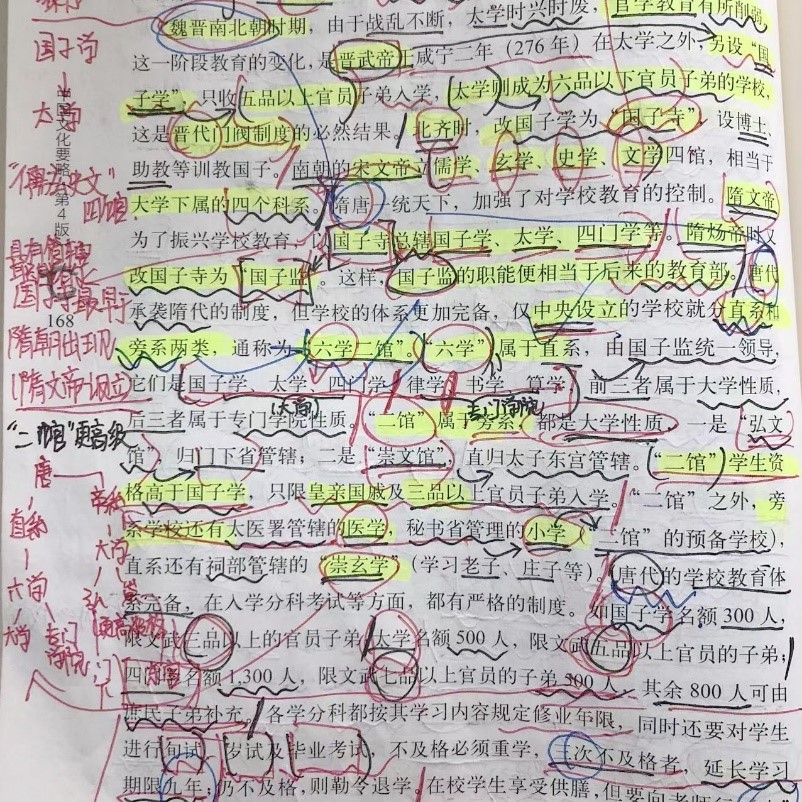 魏晋南北朝时期，由于战乱不断，太学时兴时废，官学教育有所削弱。
这一阶段教育的变化，是晋武帝于咸宁二年（276年）在太学之外，另设“国
子学”，只收五品以上官员子弟入学，太学则成为六品以下官员子弟的学校，
这是晋代门阀制度的必然结果。北齐时，改国子学为“国子寺”，设博士、
助教等训教国子。南朝的宋文帝立儒学、玄学、史学、文学四馆，相当于
大学下属的四个科系。隋唐一统天下，加强了对学校教育的控制。隋文帝
为了振兴学校教育，以国子寺总辖国子学、太学、四门学等。隋炀帝时又
改国子寺为“国子监”。这样，国子监的职能便相当于后来的教育部。唐代
承袭隋代的制度，但学校的体系更加完备，仅中央设立的学校就分直系和
旁系两类，通称为“六学二馆”。“六学”属于直系，由国子监统一领导，
它们是国子学、太学、四门学、律学、书学、算学，前三者属于大学性质，
后三者属于专门学院性质。“二馆”属于旁系，都是大学性质，一是“弘文
馆”，归门下省管辖；二是“崇文馆”，直归太子东宫管辖。“二馆”学生资
格高于国子学，只限皇亲国戚及三品以上官员子弟入学。“二馆”之外，旁
系学校还有太医署管辖的医学，秘书省管理的小学（二馆”的预备学校），
直系还有祠部管辖的“崇玄学”（学习老子、庄子等）。唐代的学校教育体
系完备，在入学分科考试等方面，都有严格的制度。如国子学名额300人，
限文武三品以上的官员子弟；太学名额500人，限文武五品以上官员的子弟；
四门学名额1,300人，限文武七品以上官员的子弟500人，其余800人可由
庶民子弟补充。各学分科都按其学习内容规定修业年限，同时还要对学生
进行旬试、岁试及毕业考试，不及格必须重学，三次不及格者，延长学习
期限九年；仍不及格，则勒令退学。在校学生享受供膳，但要向老师
国子学
太学
中国文化要略（第4版）
四馆
168
隋朝出现
隋文帝设立
(大学)
专门学院
“二馆”更高级
唐
直系
旁系
六学
大学
专门学院